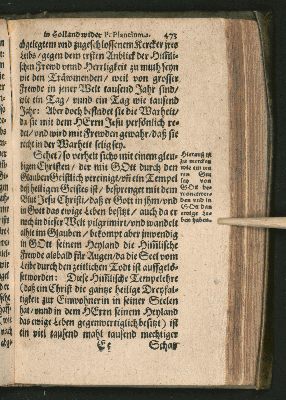 in Holland wider P. Plancium. 473
abgelegtem und zugeschlossenem Kercker ires
Leibs / gegen dem ersten Anblick der Himli-
schen Freud unnd Herrligkeit zu muth seyn
wie den Träwmenden / weil von grosser
Frewde in jener Welt tausend Jahr sind /
wie ein Tag / unnd ein Tag wie tausend
Jahr: Aber doch befindet sie die Warheit /
da sie mit dem HErrn Jesu persönlich re-
det / und wird mit Frewden gewahr / daß sie
nicht in der Warheit selig sey.
Sehet / so verhelt sichs mit einem gleu-
bigen Christen / der mit GOtt durch den
Glauben Geistlich vereinigt / uñ ein Tempel
des heiligen Geistes ist / besprenget mit dem
Blut Jesu Christi / daß er Gott in ihm / und
in Gott das ewige Leben besitzt / auch da er
noch in dieser Welt pilgrimirt / und wandelt
alhie im Glauben / bekompt aber inwendig
in GOtt seinem Heyland die Himlische
Frewde alsbald für Augen / da die Seel vom
Leibe durch den zeitlichen Todt ist auffgelö-
set worden. Diese Himlische Tempelehre
(daß ein Christ die gantze heilige Dreyfal-
tigkeit zur Einwohnerin in seiner Seelen
hat / unnd in dem HErrn seinem Heyland
das ewige Leben gegenwertiglich besitzt) ist
ein viel tausend mahl tausend mechtiger
Schatz
Hierauß ist
zu mercken
wie ein
Gott be-
den und in
GOtt das
ewige Le-
ben haben.